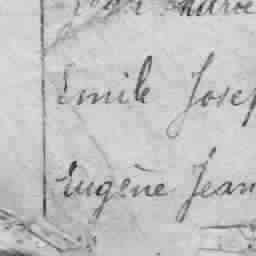 Emile Josep
Eugène Jean